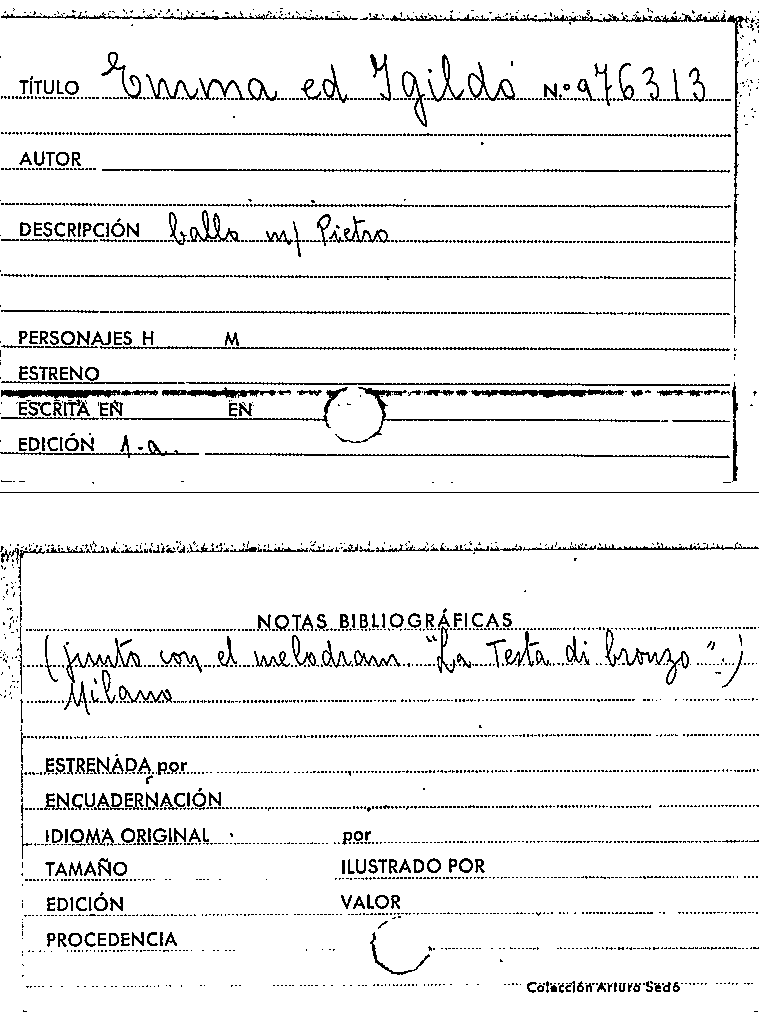 TÍTULO Emma ed Igildó N.º 976313
AUTOR
DESCRIPCIÓN ballo m/ Pietro
PERSONAJES H M
ESTRENO
ESCRITA EN EN
EDICIÓN 1-a.
NOTAS BIBLIOGRÁFICAS
(junto con el melodram. "La Testa di bronzo".)
Milano
ESTRENADA por
ENCUADERNACIÓN
IDIOMA ORIGINAL por
TAMAÑO ILUSTRADO POR
EDICIÓN VALOR
PROCEDENCIA
Colección Arturo Sedó